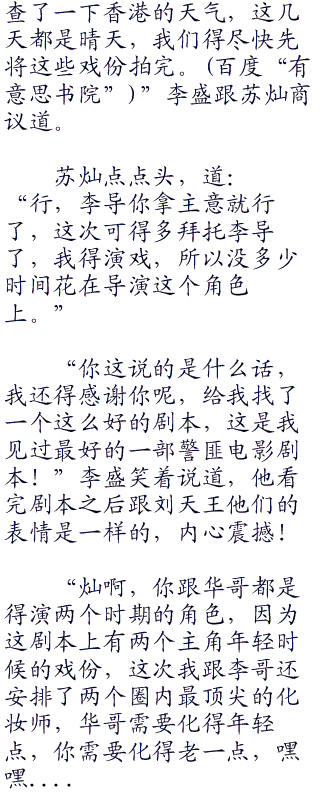 查了一下香港的天气，这几
天都是晴天，我们得尽快先
将这些戏份拍完。(百度“有
意思书院”)”李盛跟苏灿商
议道。
苏灿点点头，道：
“行，李导你拿主意就行
了，这次可得多拜托李导
了，我得演戏，所以没多少
时间花在导演这个角色
上。”
“你这说的是什么话，
我还得感谢你呢，给我找了
一个这么好的剧本，这是我
见过最好的一部警匪电影剧
本！”李盛笑着说道，他看
完剧本之后跟刘天王他们的
表情是一样的，内心震撼！
“灿啊，你跟华哥都是
得演两个时期的角色，因为
这剧本上有两个主角年轻时
候的戏份，这次我跟李哥还
安排了两个圈内最顶尖的化
妆师，华哥需要化得年轻
点，你需要化得老一点，嘿
嘿....